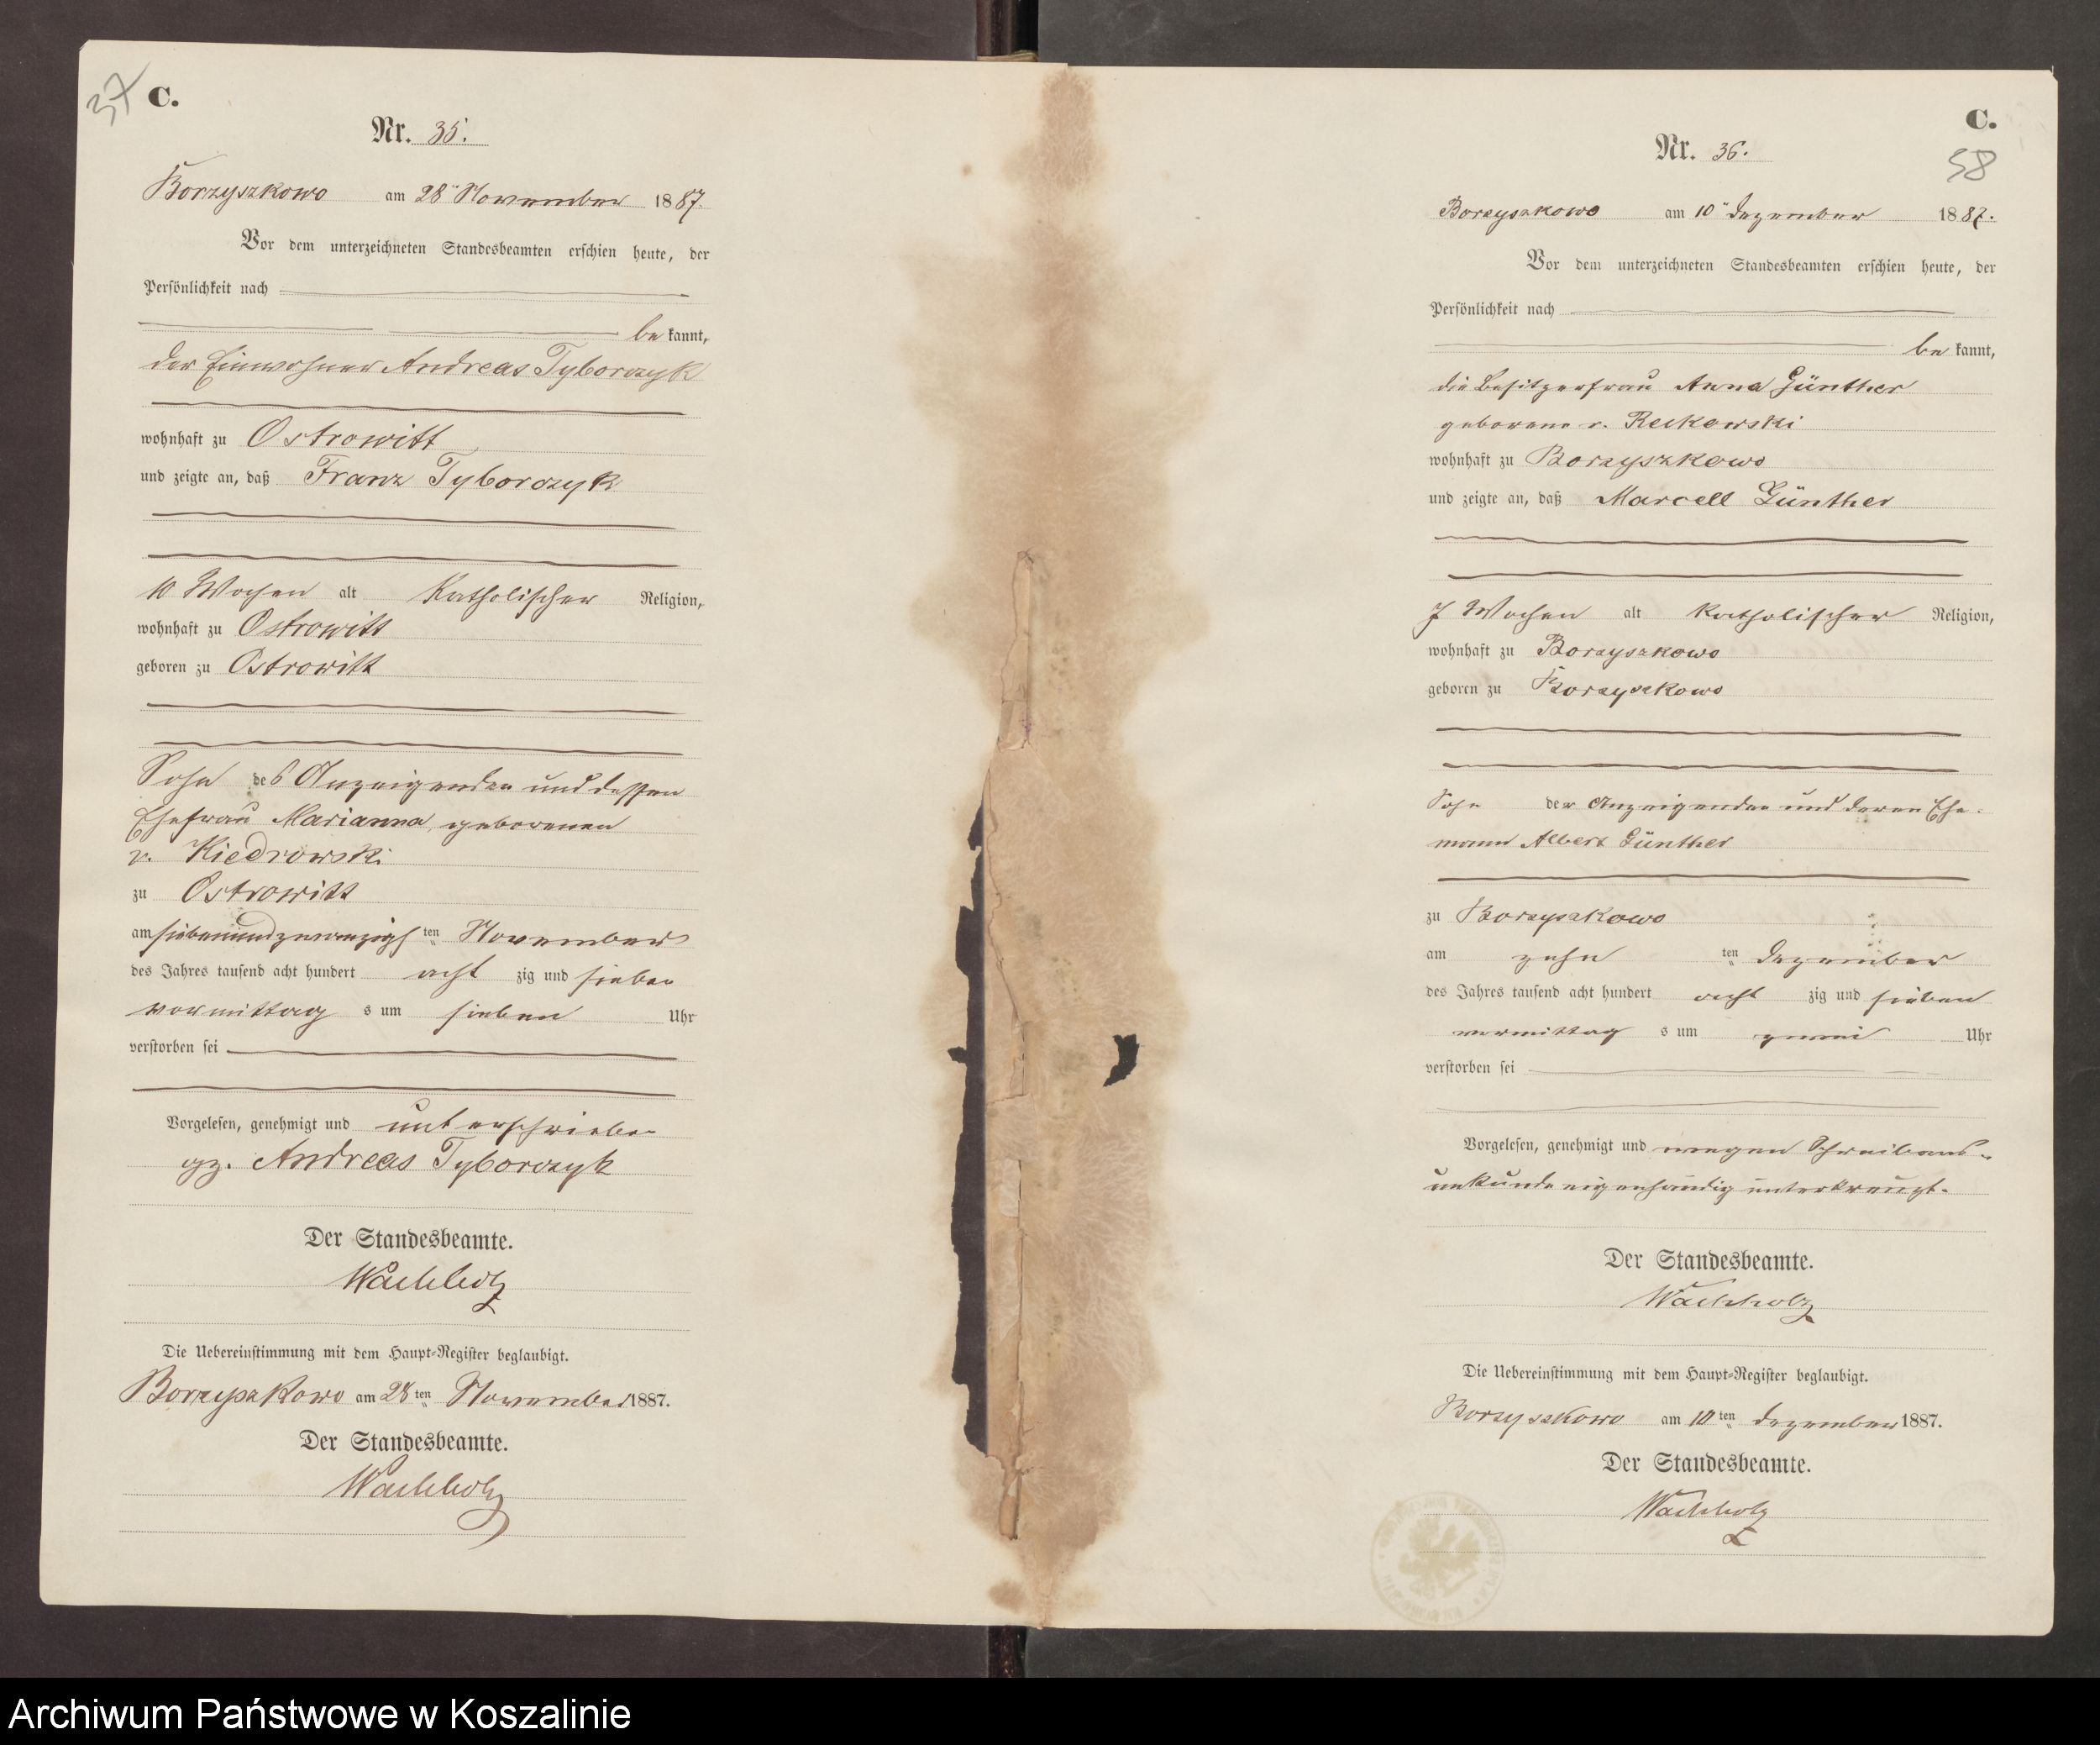 37 C.
Nr. 35.
Borzyszkowo am 28ten November 1887.
Vor dem unterzeichneten Standesbeamten erschien heute, der
Persönlichkeit nach
be kannt,
der Einwohner Andreas Tyborczyk
wohnhaft zu Ostrowitt
und zeigte an, daß Franz Tyborczyk
10 Wochen alt Katholischer Religion,
wohnhaft zu Ostrowitt
geboren zu Ostrowitt
Sohn des Anzeigenden und dessen
Ehefrau Marianna, geborenen
v. Kiedrowski
zu Ostrowitt
am siebenundzwanzigsten November
des Jahres tausend acht hundert acht zig und sieben
vormittag s um sieben Uhr
verstorben sei
Vorgelesen, genehmigt und unterschrieben
gz. Andreas Tyborczyk
Der Standesbeamte.
Wachholz
Die Uebereinstimmung mit dem Haupt-Register beglaubigt.
Borzyszkowo am 28ten November 1887.
Der Standesbeamte.
Wachholz
C.
58
Nr. 36.
Borzyszkowo am 10ten Dezember 1887.
Vor dem unterzeichneten Standesbeamten erschien heute, der
Persönlichkeit nach
be kannt,
die Besitzerfrau Anna Günther
geborene v. Reckowski
wohnhaft zu Borzyszkowo
und zeigte an, daß Marcell Günther
7 Wochen alt katholischer Religion,
wohnhaft zu Borzyszkowo
geboren zu Borzyszkowo
Sohn der Anzeigenden und deren Ehe-
mann Albert Günther
zu Borzyszkowo
am zehn ten Dezember
des Jahres tausend acht hundert acht zig und sieben
vormittag s um zwei Uhr
verstorben sei
Vorgelesen, genehmigt und wegen Schreibens-
unkunde eigenhändig unterkreuzt.
Der Standesbeamte.
Wachholz
Die Uebereinstimmung mit dem Haupt-Register beglaubigt.
Borzyszkowo am 10ten Dezember 1887.
Der Standesbeamte.
Wachholz
Archiwum Państwowe w Koszalinie